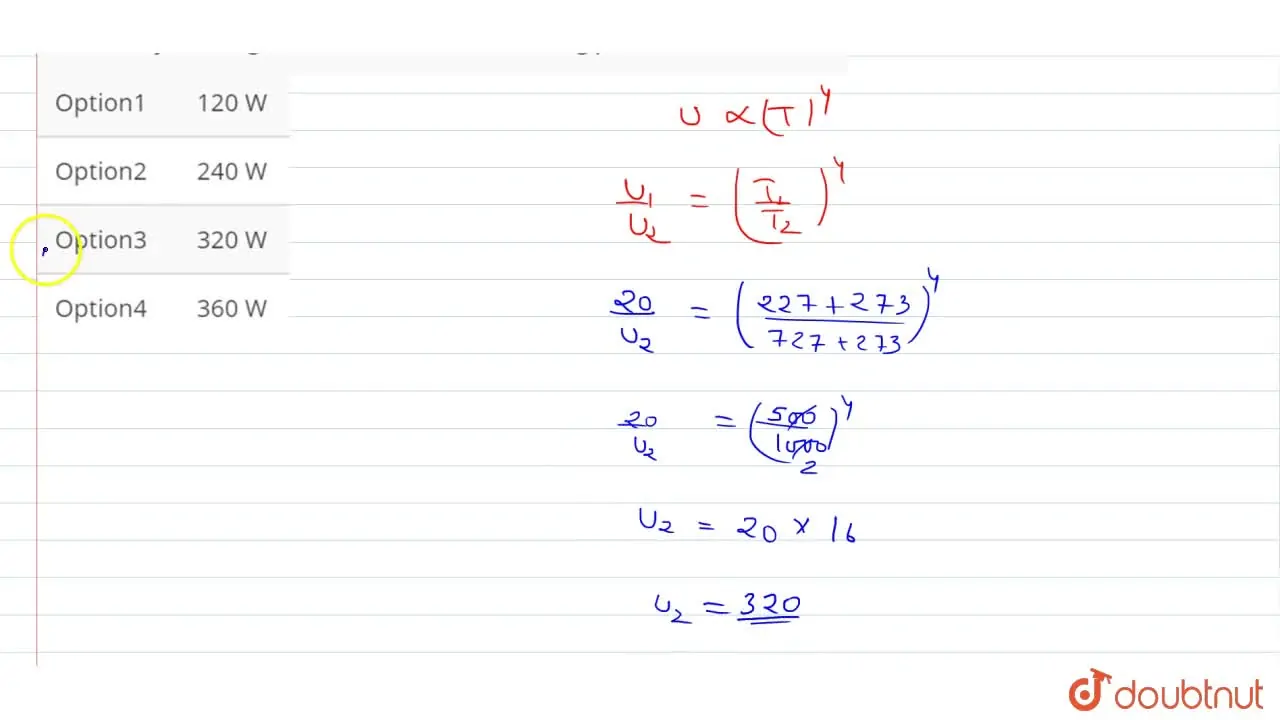 Option1 120 W
Option2 240 W
Option3 320 W
Option4 360 W
U ∝ (T)^4
U1/U2 = (T1/T2)^4
20/U2 = (227+273/727+273)^4
20/U2 = (500/1000)^4
2
U2 = 20 × 16
U2 = 320
doubtnut